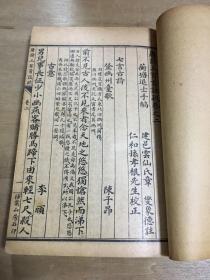 蘅塘退士手編
建邑雲仙氏章燮象德註
仁和孫孝根先生校正
七言古詩
登幽州臺歌
陳子昂
前不見古人後不見來者念天地之悠悠獨愴然而涕下
古意
李頎
男兒事長征少小幽燕客賭勝馬蹄下由來輕七尺殺人
卷二